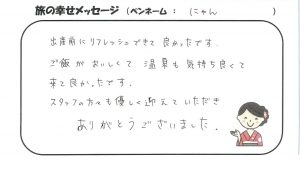 旅の幸せメッセージ (ペンネーム : にゃん )
出産前にリフレッシュできて良かったです。
ご飯がおいしくて 温泉も気持ち良くて
来て良かったです。
スタッフの方々も優しく迎えていただき
ありがとうございました。